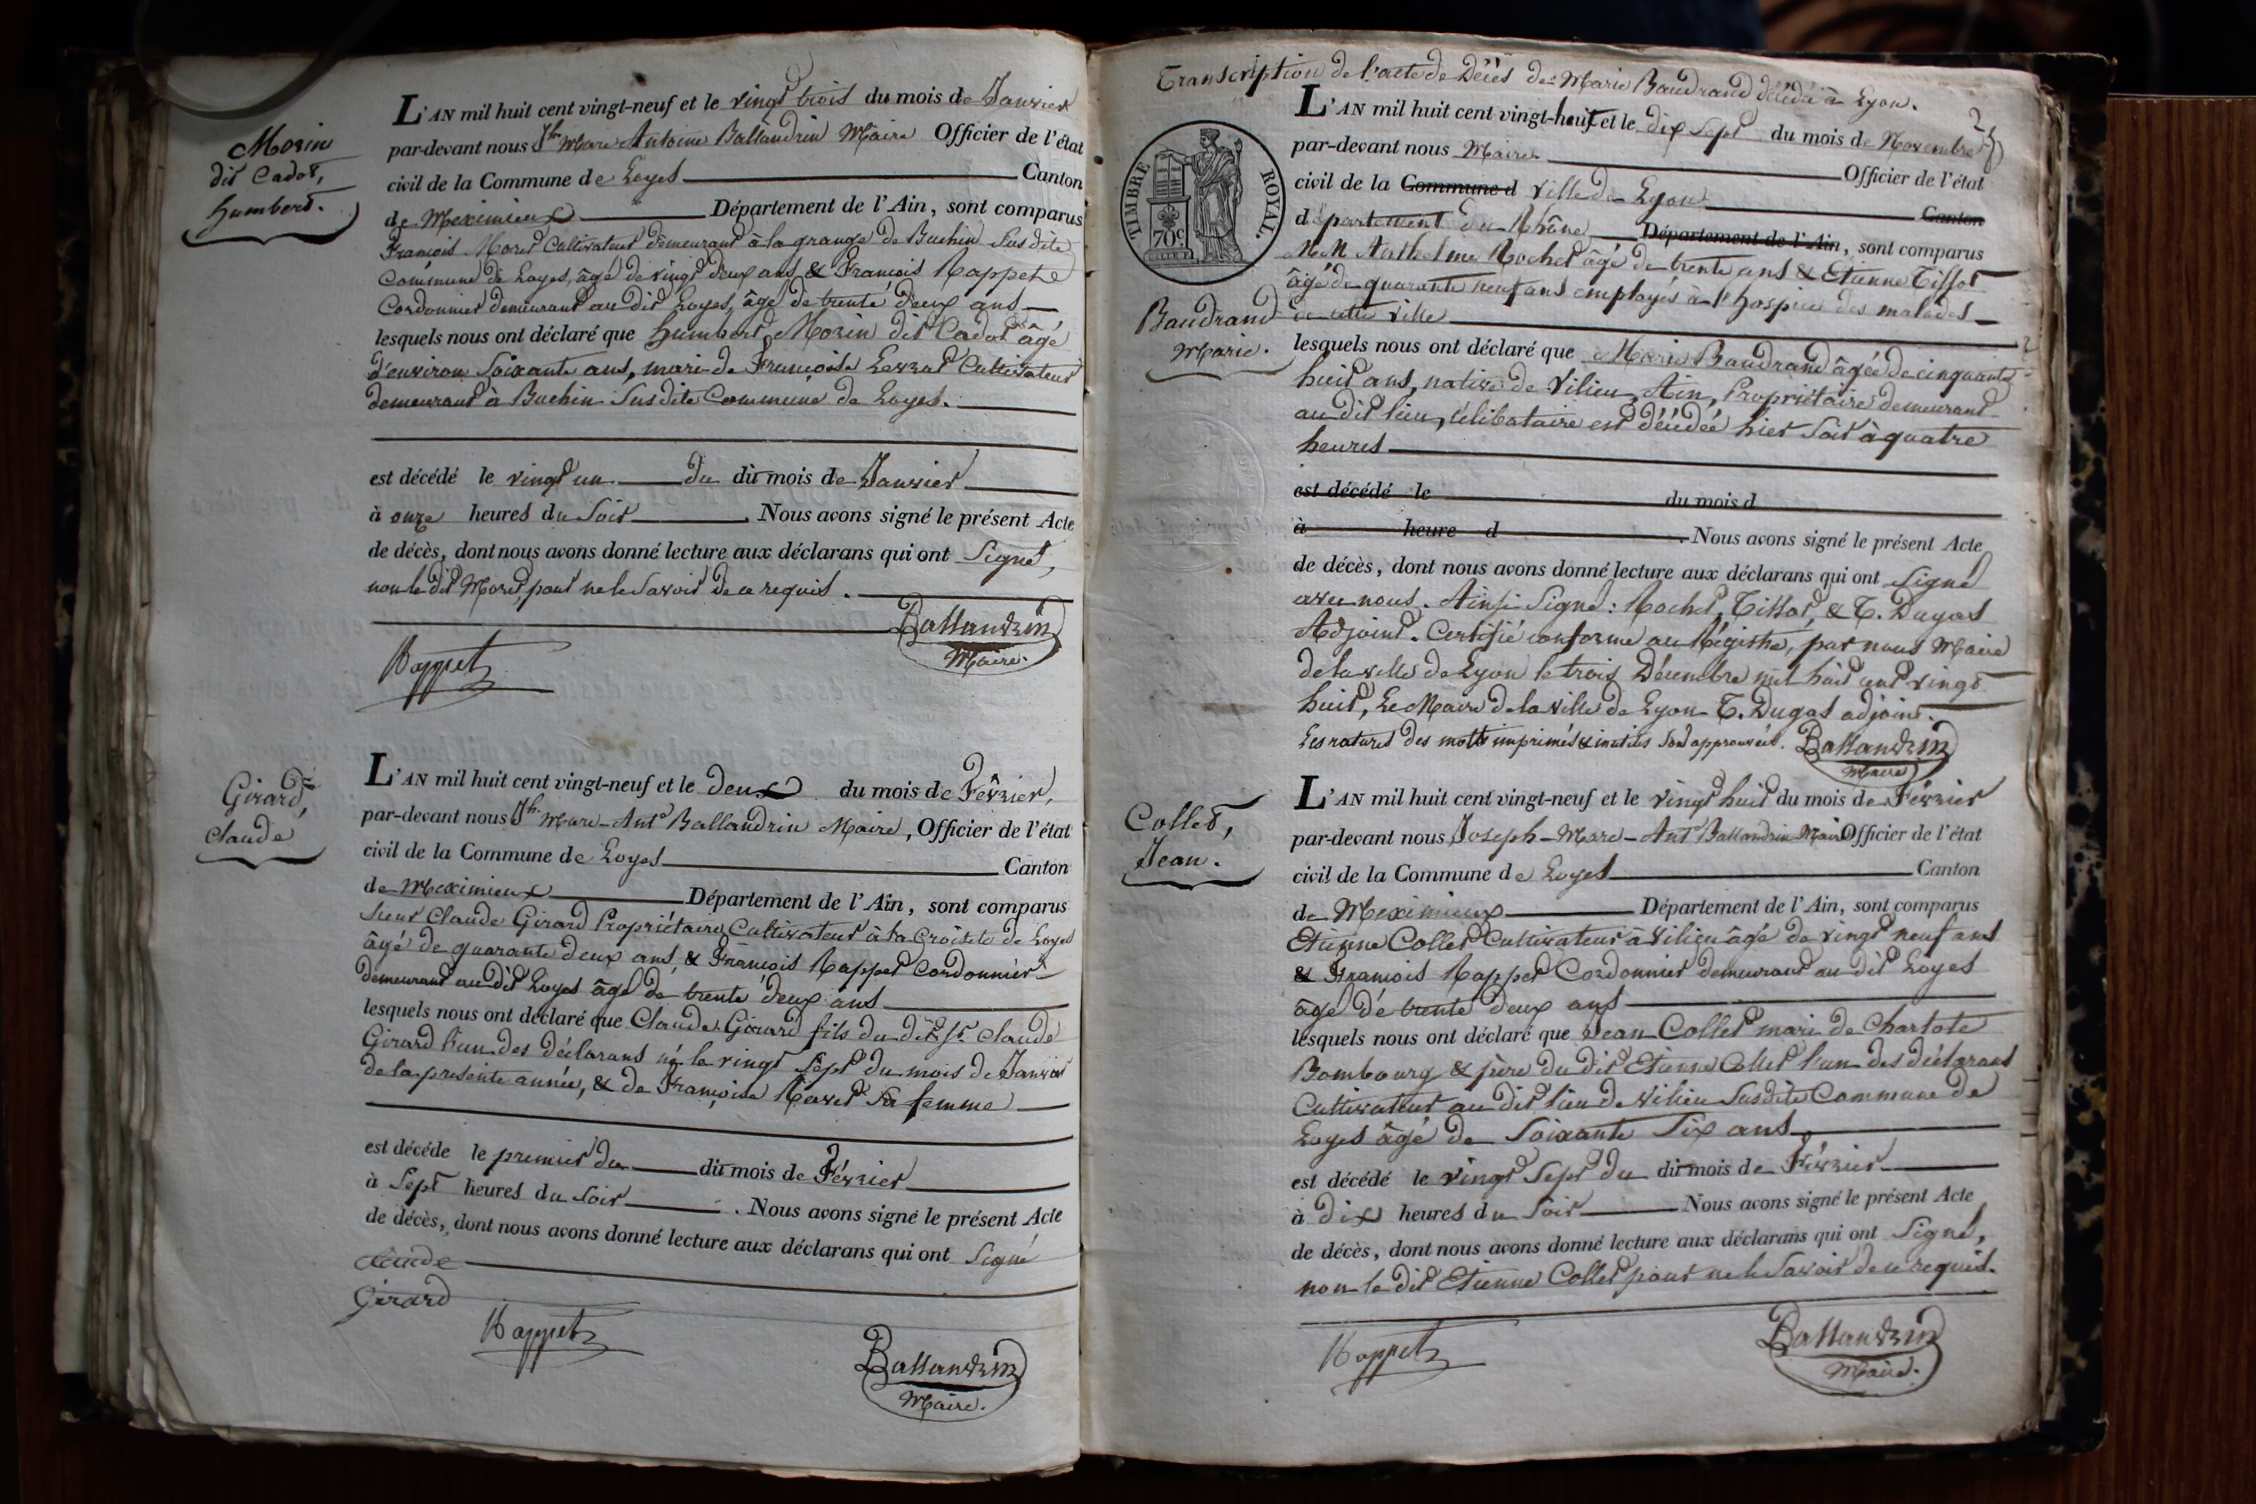 Morin
dit Cadot,
humbert.
L'AN mil huit cent vingt-neuf et le vingt trois du mois de Janvier
par-devant nous Jh Marc Antoine Ballandrin Maire Officier de l'état
civil de la Commune de Loyes Canton
de Meximieux Département de l'Ain, sont comparus
François Moret Cultivateur demeurant à la grange de Buchin susdite
Commune de Loyes, âgé de vingt deux ans, & François Rappet
Cordonnier demeurant au dit Loyes, âgé de trente deux ans
lesquels nous ont déclaré que humbert Morin dit Cadot âgé
d'environ soixante ans, mari de Françoise Levrat Cultivateur
demeurant à Buchin susdite Commune de Loyes.
est décédé le vingt un du dit mois de Janvier
à onze heures du soir. Nous avons signé le présent Acte
de décès, dont nous avons donné lecture aux déclarans qui ont signé,
non le dit Moret, pour ne le savoir de ce requis.
Ballandrin
Maire.
Rappet
Girard,
Claude
L'AN mil huit cent vingt-neuf et le deux du mois de Février,
par-devant nous Jh Marc-Ant.e Ballandrin Maire, Officier de l'état
civil de la Commune de Loyes Canton
de Meximieux Département de l'Ain, sont comparus
sieur Claude Girard Propriétaire Cultivateur à la Croisette de Loyes
âgé de quarante deux ans, & François Rappet Cordonnier
demeurant au dit Loyes âgé de trente deux ans
lesquels nous ont déclaré que Claude Girard fils du dit Sr. Claude
Girard l'un des déclarans né le vingt sept du mois de Janvier
de la presente année, & de Françoise Ravet sa femme
est décédé le premier du dit mois de Février
à sept heures du soir. Nous avons signé le présent Acte
de décès, dont nous avons donné lecture aux déclarans qui ont signé
Claude
Girard
Rappet
Ballandrin
Maire.
Transcription de l'acte de Décès de Marie Baudrand décédée à Lyon.
TIMBRE ROYAL.
70c
Baudrand
Marie.
L'AN mil huit cent vingt-huit et le dix sept du mois de Novembre
par-devant nous Maire Officier de l'état
civil de la Commune d ville de Lyon Canton
département du Rhône Département de l'Ain, sont comparus
MM Anthelme Rochet âgé de trente ans & Etienne Tissot
âgé de quarante neuf ans employés à l'hospice des malades
de cette ville
lesquels nous ont déclaré que Marie Baudrand âgée de cinquante
huit ans, native de Vilieu, Ain, Propriétaire demeurant
au dit lieu, célibataire est décédée hier soir à quatre
heures
est décédé le du mois d
à heure d . Nous avons signé le présent Acte
de décès, dont nous avons donné lecture aux déclarans qui ont signé
avec nous. Ainsi signé: Rochet, Tissot, & T. Dugas
Adjoint. Certifié conforme au Régistre, par nous Maire
de la ville de Lyon le trois Décembre mil huit cent vingt
huit, Le Maire de la ville de Lyon T. Dugas adjoint.
Les ratures des mots imprimés & inutiles sont approuvées. Ballandrin
Maire
Collet,
Jean.
L'AN mil huit cent vingt-neuf et le vingt huit du mois de Février
par-devant nous Joseph-Marc-Ant.e Ballandrin Maire Officier de l'état
civil de la Commune de Loyes Canton
de Meximieux Département de l'Ain, sont comparus
Etienne Collet Cultivateur à Vilieu âgé de vingt neuf ans
& François Rappet Cordonnier demeurant au dit Loyes
âgé de trente deux ans
lesquels nous ont déclaré que Jean Collet mari de Charlote
Bombourg & père du dit Etienne Collet l'un des déclarans
Cultivateur au dit lieu de Vilieu susdite Commune de
Loyes âgé de soixante six ans
est décédé le vingt sept du dit mois de Février
à dix heures du soir Nous avons signé le présent Acte
de décès, dont nous avons donné lecture aux déclarans qui ont signé,
non le dit Etienne Collet pour ne le savoir de ce requis.
Rappet
Ballandrin
Maire.